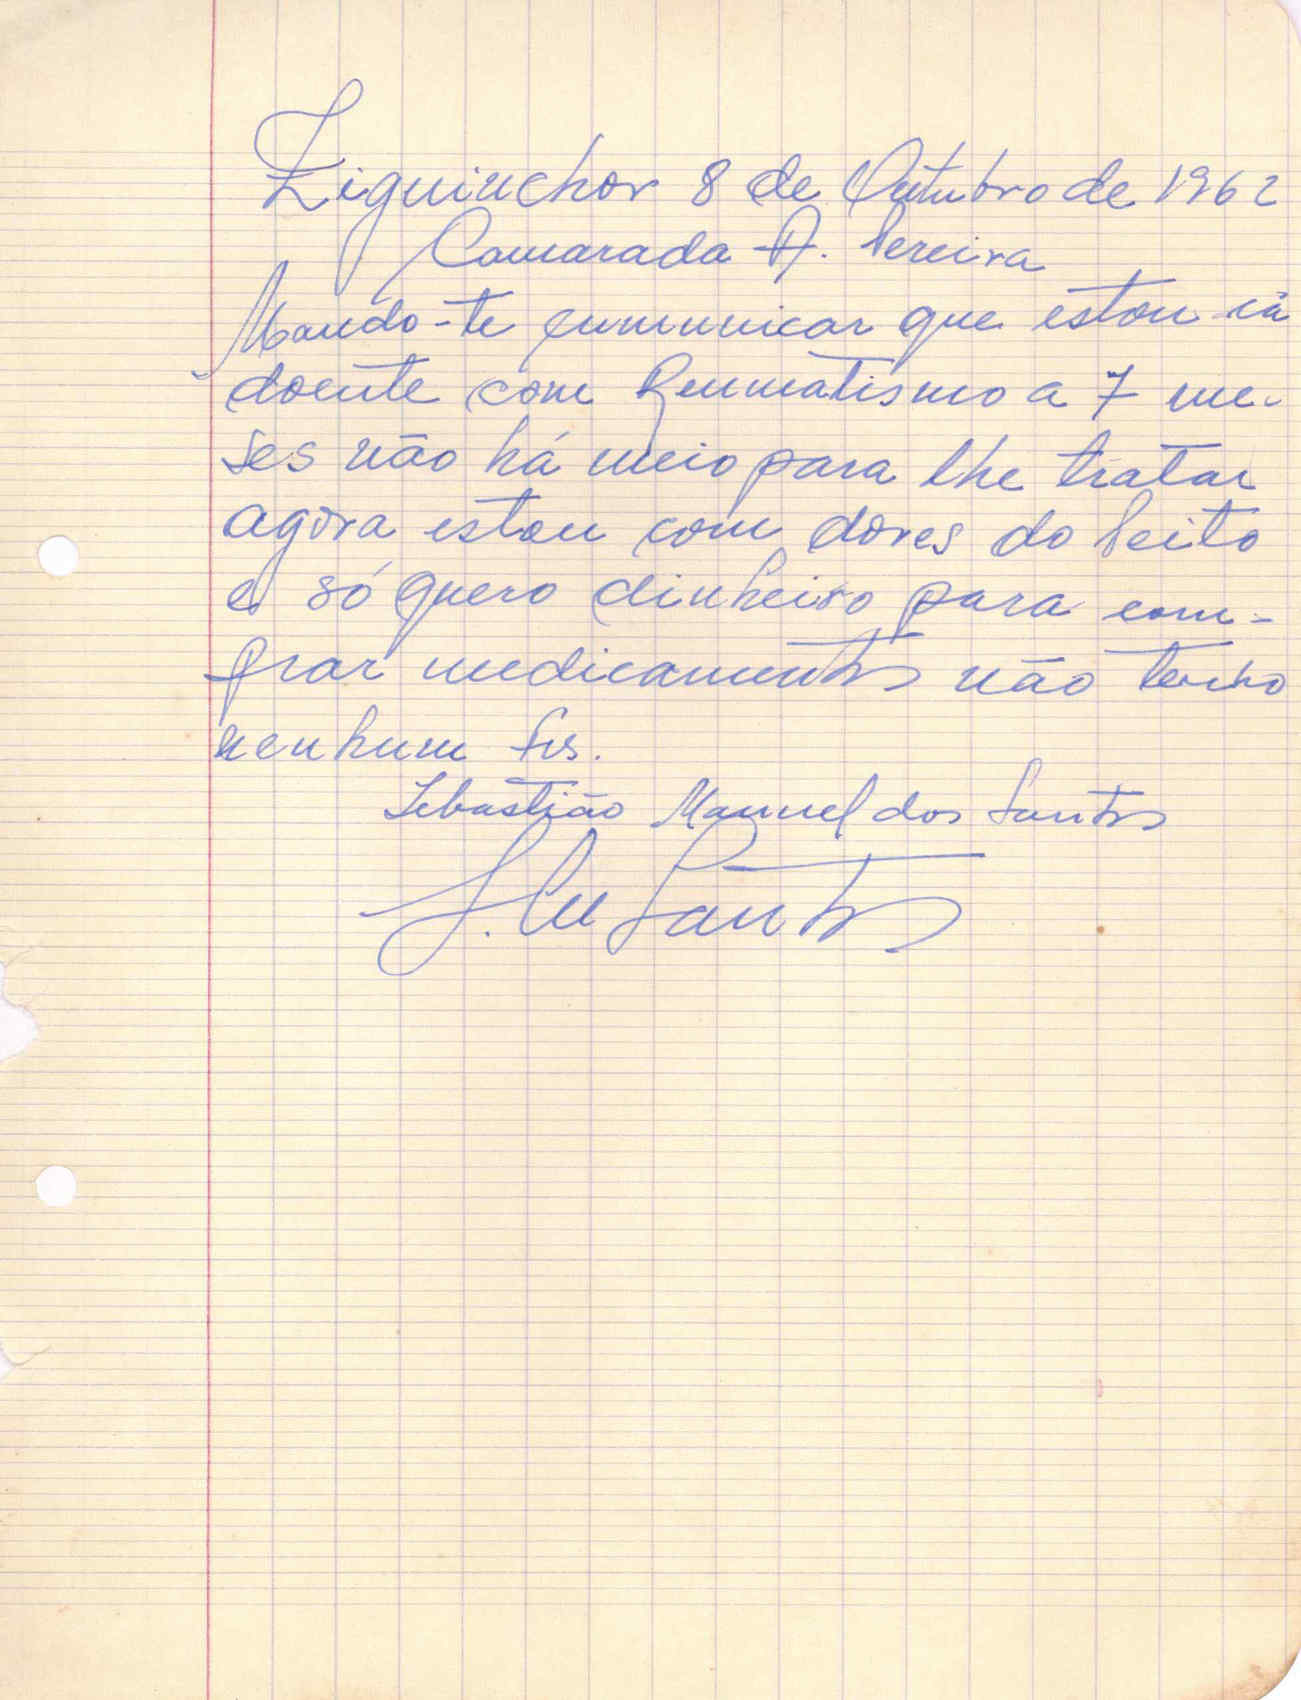 Ziguinchor 8 de Outubro de 1962
Camarada A. Pereira
Mando-te cumunicar que estou cá
doente com Reumatismo a 7 me-
ses não há meio para lhe tratar
agora estou com dores do Peito
e só quero dinheiro para com-
prar medicamentos não tenho
nenhum frs.
Sebastião Manuel dos Santos
Santos